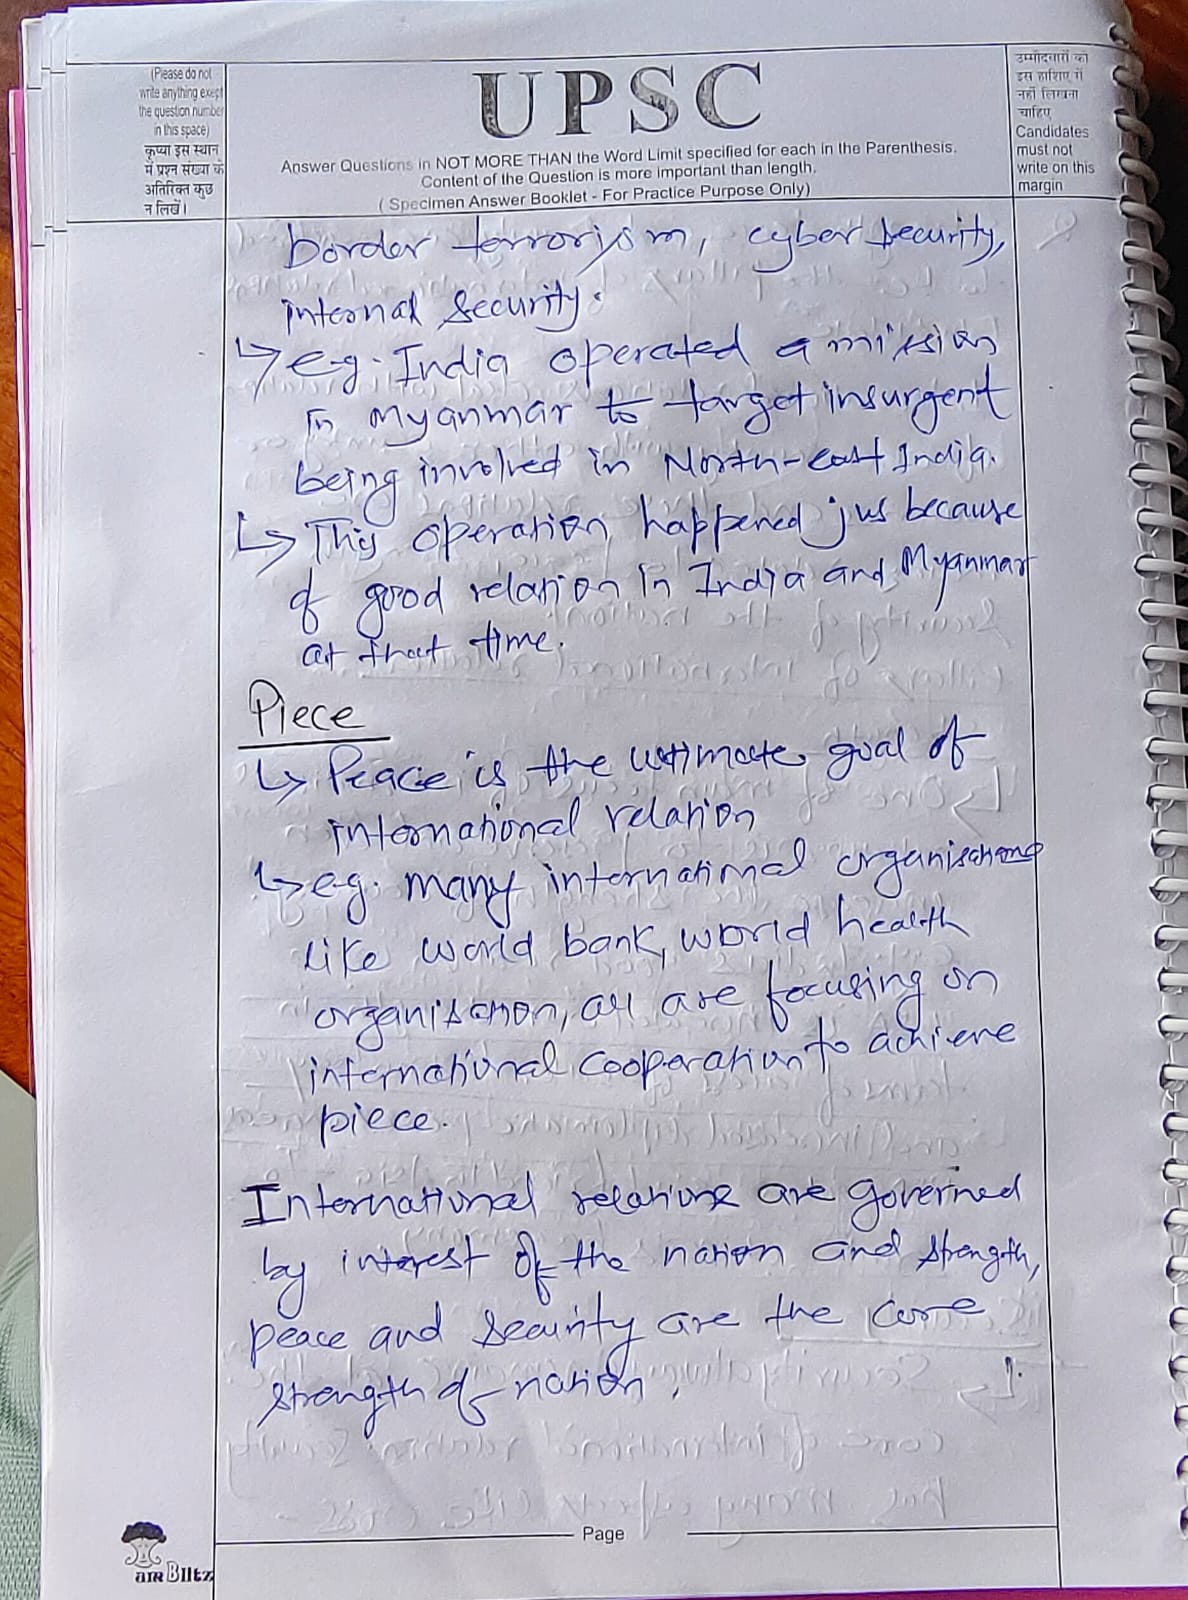 (Please do not
write anything exept
the question number
in this space)
कृप्या इस स्थान
में प्रश्न संख्या के
अतिरिक्त कुछ
न लिखें।
UPSC
Answer Questions in NOT MORE THAN the Word Limit specified for each in the Parenthesis.
Content of the Question is more important than length.
( Specimen Answer Booklet - For Practice Purpose Only)
उम्मीदवारों को
इस हाशिए में
नहीं लिखना
चाहिए
Candidates
must not
write on this
margin
border terrorism, cyber security,
internal security.
↳ e.g. India operated a mission
in Myanmar to target insurgent
being involved in North-east India.
↳ This operation happened jus because
of good relation in India and Myanmar
at that time.
Piece
↳ Peace is the ultimate goal of
international relation
↳ e.g. many international organisations
like world bank, world health
organisation, all are focusing on
international cooperation to achieve
piece.
International relations are governed
by interest of the nation and strength,
peace and security are the core
strength of nation.
Page
am Blitz